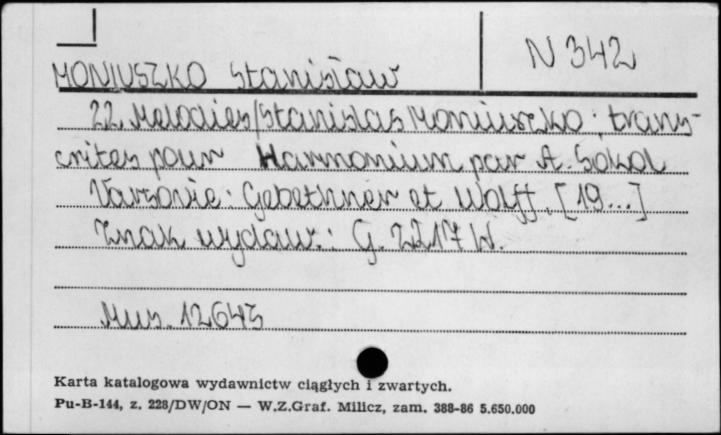 N 342
MONIUSZKO Stanisław
22 Melodies/Stanislas Moniuszko ; trans-
crites pour Harmonium par A. Sokol
Varsovie : Gebethner et Wolff, [19...]
Znak wydaw. : G. 2217 W.
Mus. 12643
Karta katalogowa wydawnictw ciągłych i zwartych.
Pu-B-144, z. 228/DW/ON — W.Z.Graf. Milicz, zam. 388-86 5.650.000